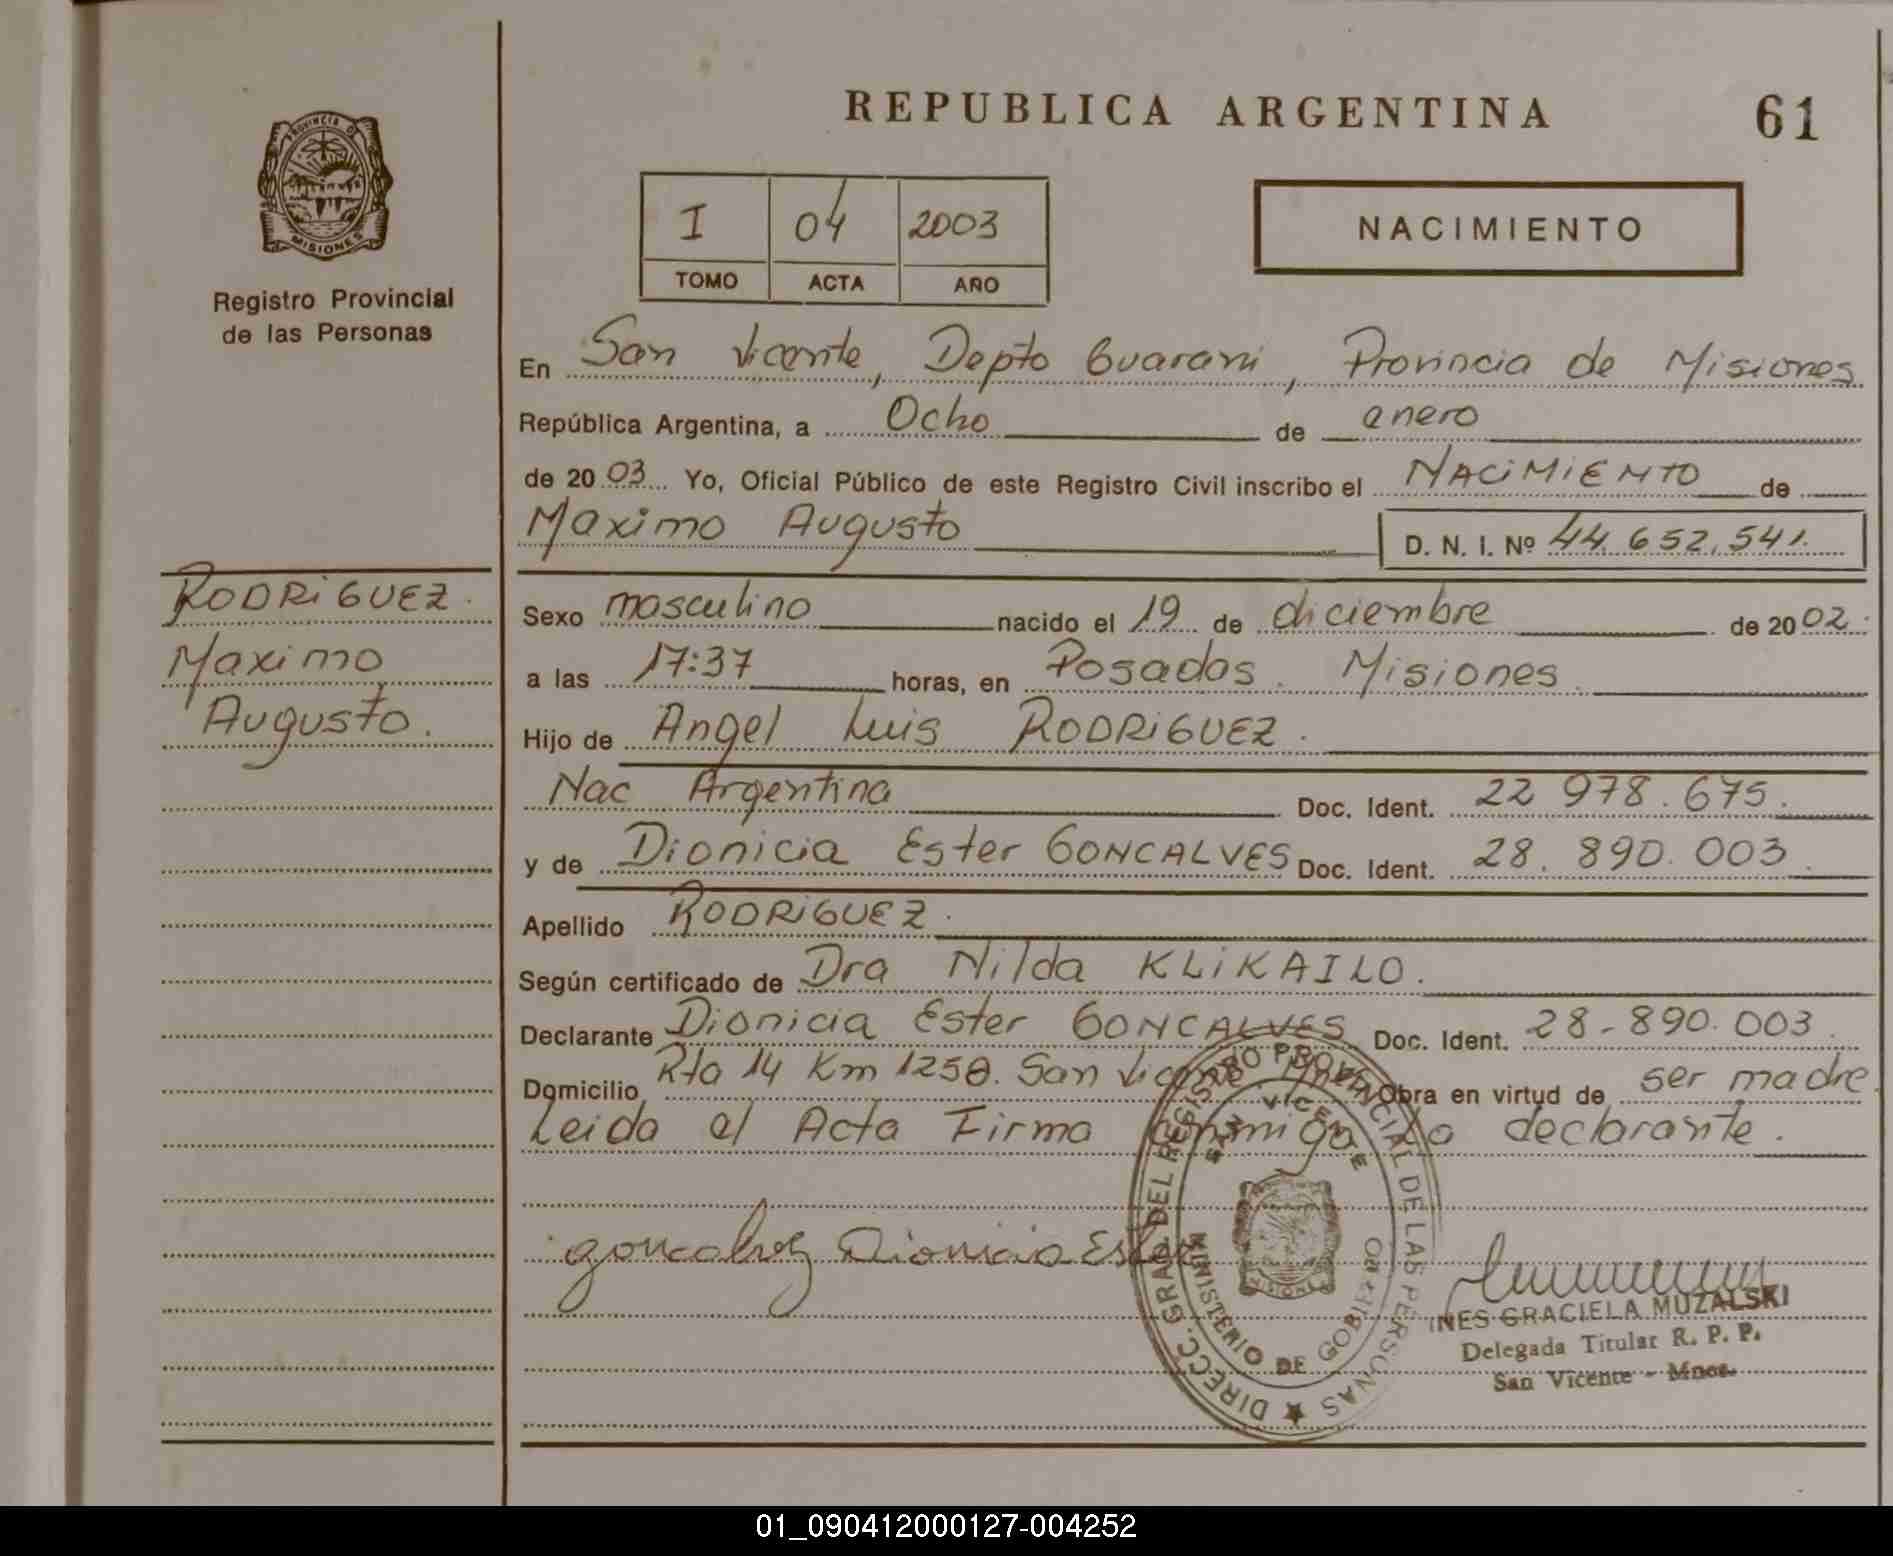 REPUBLICA ARGENTINA
61
PROVINCIA DE
MISIONES
Registro Provincial
de las Personas
I 04 2003
TOMO ACTA AÑO
NACIMIENTO
En San Vicente, Depto Guarani, Provincia de Misiones
República Argentina, a Ocho de enero
de 2003 Yo, Oficial Público de este Registro Civil inscribo el NACIMIENTO de
Maximo Augusto D. N. I. Nº 44.652.541.
RODRIGUEZ.
Maximo
Augusto.
Sexo masculino nacido el 19 de diciembre de 2002.
a las 17:37 horas, en Posadas. Misiones.
Hijo de Angel Luis RODRIGUEZ.
Nac Argentina Doc. Ident. 22 978.675.
y de Dionicia Ester GONCALVES Doc. Ident. 28. 890. 003.
Apellido RODRIGUEZ.
Según certificado de Dra Nilda KLIKAILO.
Declarante Dionicia Ester GONCALVES Doc. Ident. 28-890.003.
Domicilio Rta 14 Km 1250. San Vicente Obra en virtud de ser madre.
Leida el Acta Firma conmigo La declarante.
goncalvez Dionicia Ester
DIRECC. GRAL. DEL REGISTRO PROVINCIAL DE LAS PERSONAS
SAN VICENTE
MISIONES
MINISTERIO DE GOBIERNO
INES GRACIELA MUZALSKI
Delegada Titular R. P. P.
San Vicente - Mnes.
01_090412000127-004252